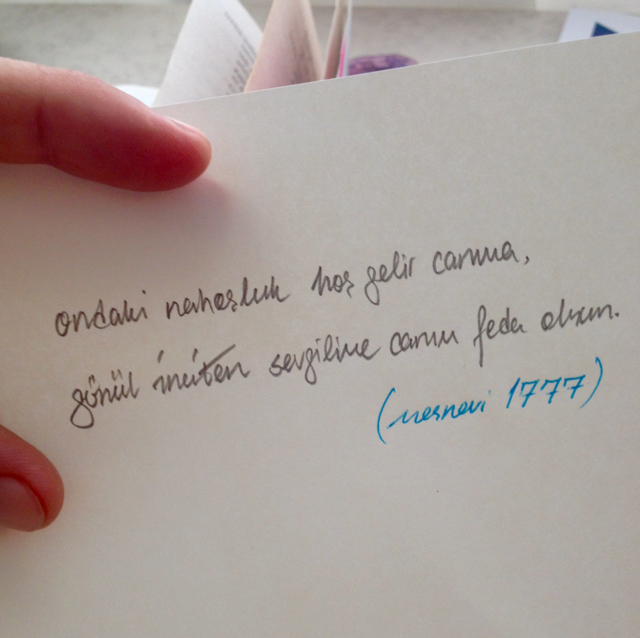 ondaki nahoşluk hoş gelir canıma,
gönül inciten sevgilime canım feda olsun.
(mesnevi 1777)